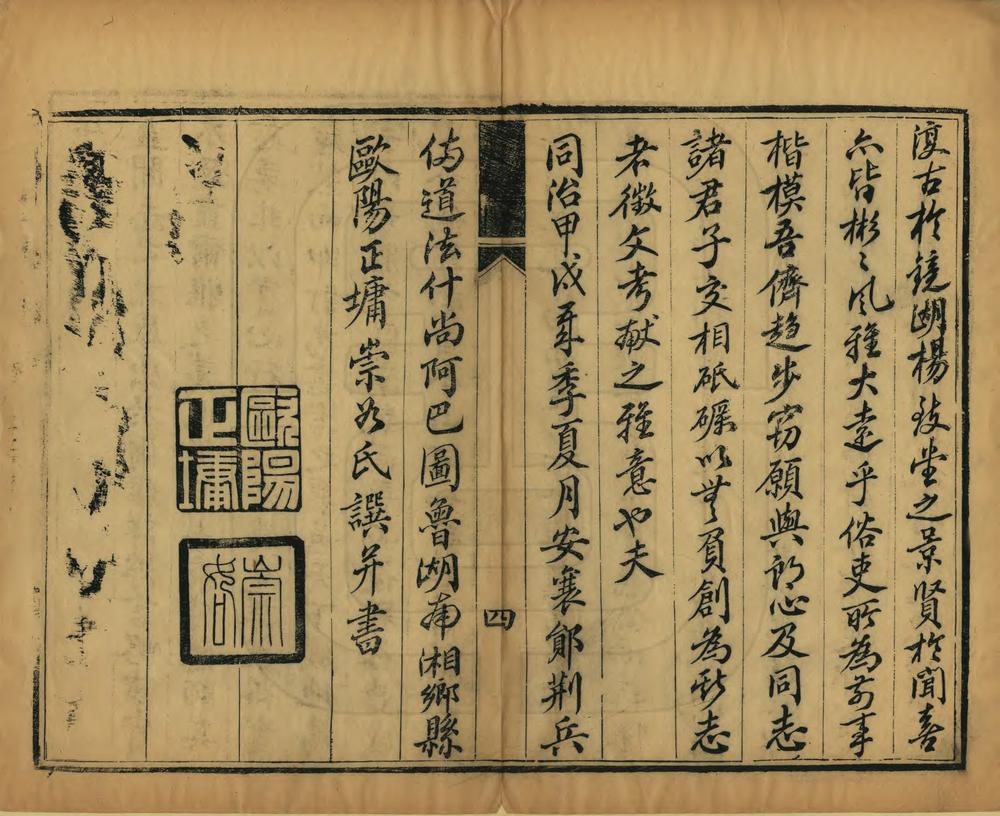 復古於鏡湖楊致堂之景賢於聞喜
亦皆彬彬風雅大遠乎俗吏所為前事
楷模吾儕趨步窃願與朗心及同志
諸君子交相砥礪以無負創為斯志
者徵文考献之雅意也夫
同治甲戌年季夏月安襄鄖荆兵
備道法什尚阿巴圖魯湖南湘鄉縣
歐陽正墉崇如氏譔并書
四
歐陽正墉
崇如